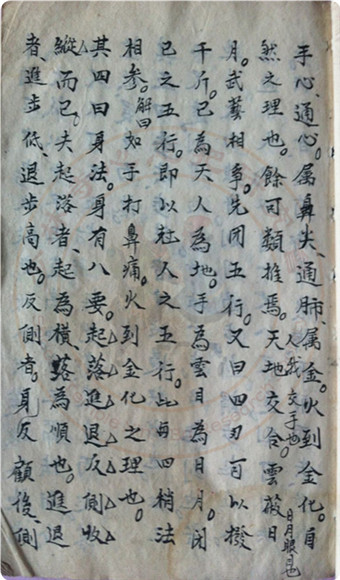 手心、通心。屬鼻尖、通肺、屬金。火到金化。自
然之理也。餘可類推焉。天地交合。雲蔽日
人我交手也
日月眼是也
月。武藝相爭。先閉五行。又曰四可以撥
千斤。已為天人為地。手為雲目為日月。閉
已之五行。即以人之五行。此與四梢法
相參。解曰如手打鼻痛。火到金化之理也。
其四曰身法。身有八要。起落進退反側收
縱而已。夫起落者、起為橫、落為順也。進退
者、進步低、退步高也。反側者。身反顧後、側